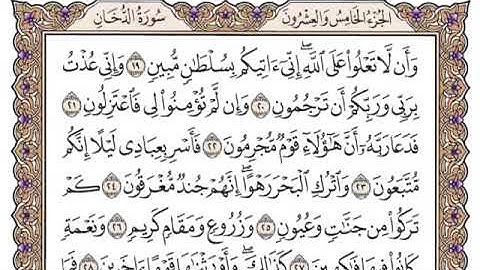 سُورَةُ الدُّخَانِ الجُزْءُ الخَامِسُ وَالعِشْرُونَ
وَأَن لَّا تَعْلُوا۟ عَلَى ٱللَّهِ ۖ إِنِّىٓ ءَاتِيكُم بِسُلْطَـٰنٍ مُّبِينٍ ١٩ وَإِنِّى عُذْتُ
بِرَبِّى وَرَبِّكُمْ أَن تَرْجُمُونِ ٢٠ وَإِن لَّمْ تُؤْمِنُوا۟ لِى فَٱعْتَزِلُونِ ٢١
فَدَعَا رَبَّهُۥٓ أَنَّ هَـٰٓؤُلَآءِ قَوْمٌ مُّجْرِمُونَ ٢٢ فَأَسْرِ بِعِبَادِى لَيْلًا إِنَّكُم
مُّتَّبَعُونَ ٢٣ وَٱتْرُكِ ٱلْبَحْرَ رَهْوًا ۖ إِنَّهُمْ جُندٌ مُّغْرَقُونَ ٢٤ كَمْ
تَرَكُوا۟ مِن جَنَّـٰتٍ وَعُيُونٍ ٢٥ وَزُرُوعٍ وَمَقَامٍ كَرِيمٍ ٢٦ وَنَعْمَةٍ
كَانُوا۟ فِيهَا فَـٰكِهِينَ ٢٧ كَذَٰلِكَ ۖ وَأَوْرَثْنَـٰهَا قَوْمًا ءَاخَرِينَ ٢٨ فَمَا